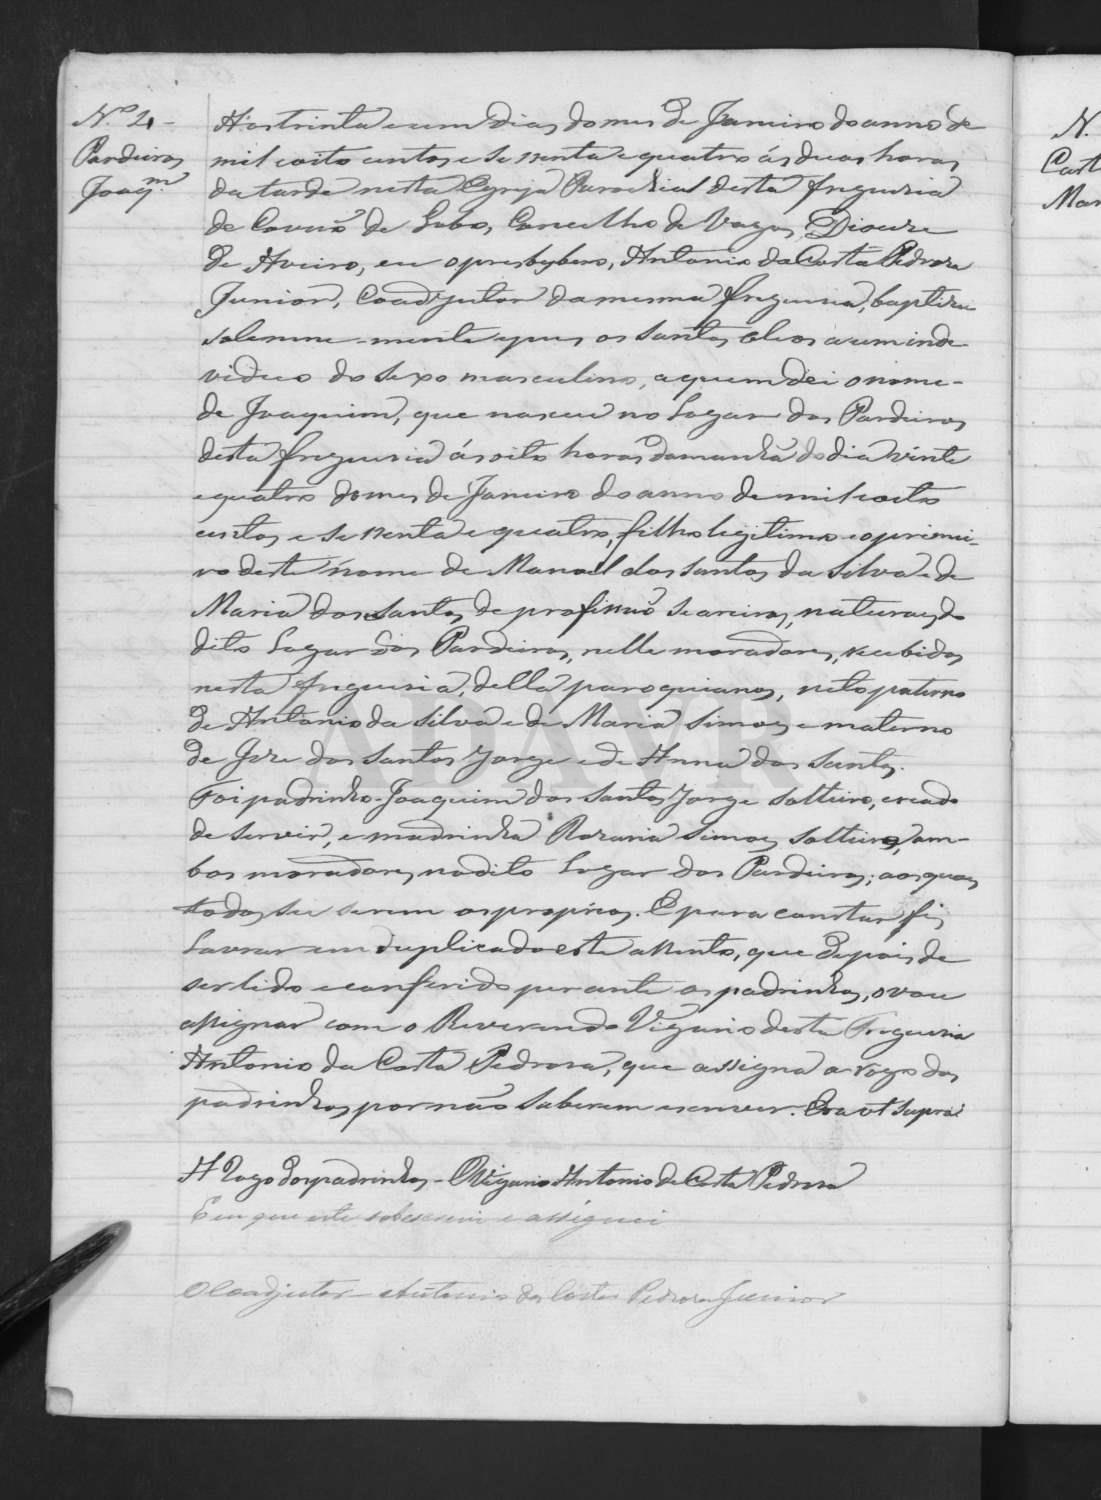 Nº 2 -
Pardeiros
Joaqm
Aos trinta e um dias do mes de Janeiro do anno de
mil e oito centos e se ssenta e quatro ás duas horas
da tarde nesta Egreja Parochial desta freguesia
de Covão de Lobo, Concelho de Vagos, Diocese
de Aveiro, eu o presbytero, Antonio da Costa Pedrosa
Junior, Coadjutor da mesma freguesia, baptizei
solemne-mente e pus os santos oleos a um inde-
viduo do sexo masculino, a quem dei o nome-
de Joaquim, que nasceu no Lugar dos Pardeiros
desta freguesia ás oito horas da manhã do dia vinte
e quatro do mes de Janeiro do anno de mil e oito
centos e se ssenta e quatro, filho legitimo e o primei-
ro deste nome de Manoel dos Santos da Silva e de
Maria dos Santos, de profissão seareiros, naturaes do
dito Lugar dos Pardeiros, nelle moradores, recebidos
nesta freguesia, della paroquianos, neto paterno
de Antonio da Silva e de Maria Simoes e materno
de Joze dos Santos Jorge e de Anna dos Santos.
Foi padrinho Joaquim dos Santos Jorge solteiro, creado
de servir, e madrinha Rozaria Simoes solteira, am-
bos moradores no dito Lugar dos Pardeiros; aos quaes
todos sei serem os proprios. E para constar fis
Lavrar em duplicado este assento, que depois de
ser lido e conferido perante os padrinhos, o vou
assignar com o Reverendo Vigario desta Freguesia
Antonio da Costa Pedrosa, que assigna a rogo dos
padrinhos por não saberem escrever. Era ut supra
A Rogo dos padrinhos - O Vigario Antonio da Costa Pedrosa
E eu que este sobescrevi e assignei
O Coadjutor - Antonio da Costa Pedrosa Junior
N.
Cast
Mar
ADAVR